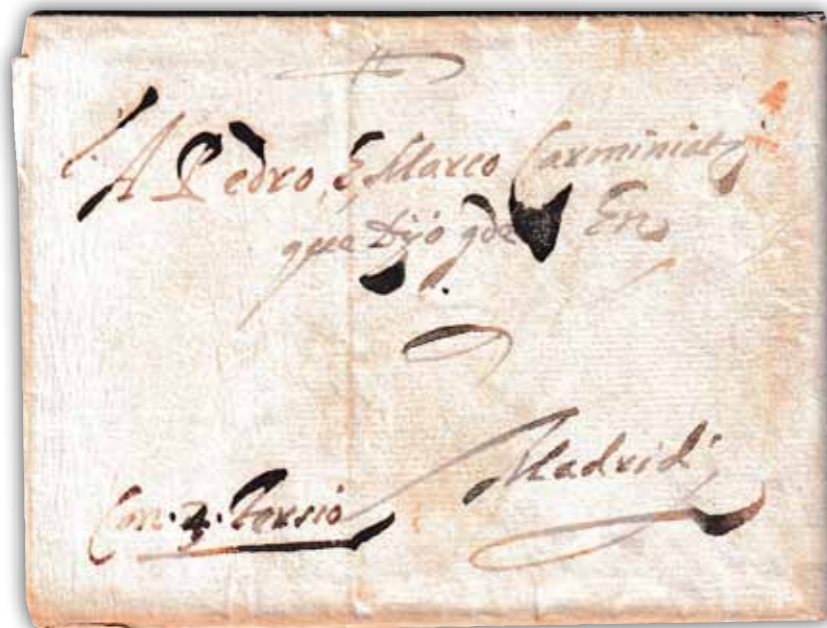 A Pedro, y Marco Carminiatj
que Dijo gde En
Madrid
Con.4.Persio